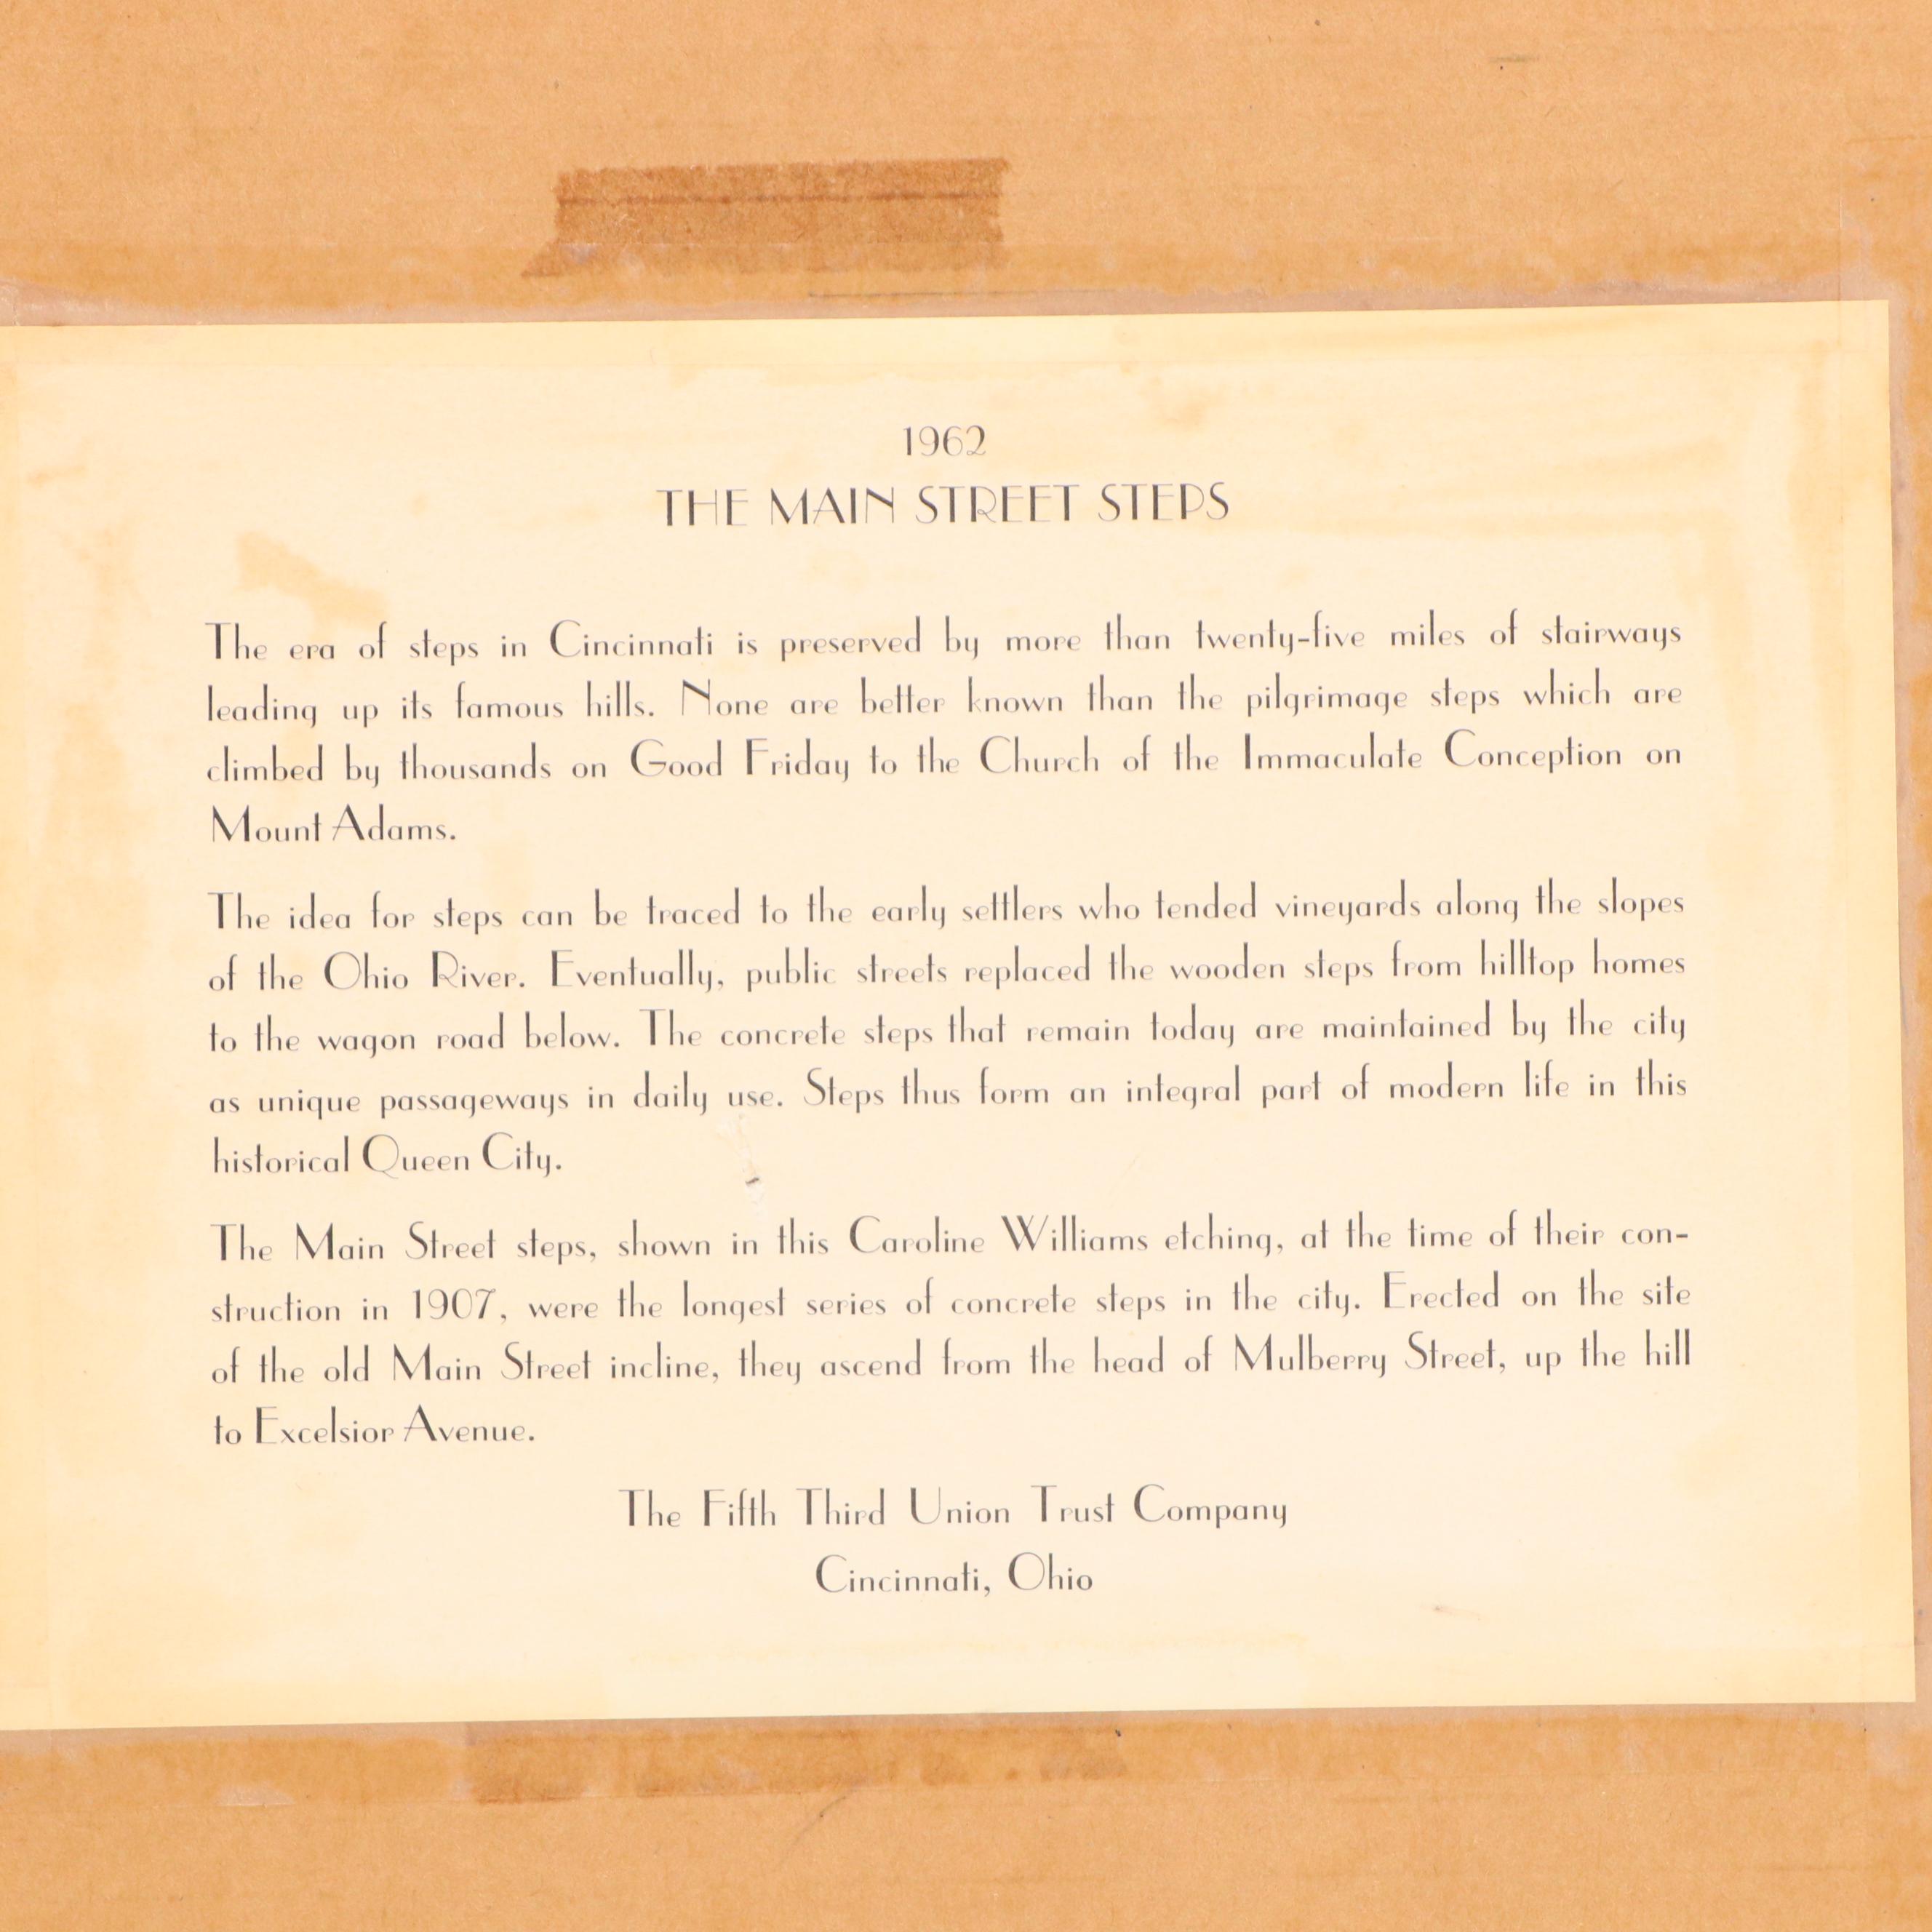 1962
THE MAIN STREET STEPS
The era of steps in Cincinnati is preserved by more than twenty-five miles of stairways
leading up its famous hills. None are better known than the pilgrimage steps which are
climbed by thousands on Good Friday to the Church of the Immaculate Conception on
Mount Adams.
The idea for steps can be traced to the early settlers who tended vineyards along the slopes
of the Ohio River. Eventually, public streets replaced the wooden steps from hilltop homes
to the wagon road below. The concrete steps that remain today are maintained by the city
as unique passageways in daily use. Steps thus form an integral part of modern life in this
historical Queen City.
The Main Street steps, shown in this Caroline Williams etching, at the time of their con-
struction in 1907, were the longest series of concrete steps in the city. Erected on the site
of the old Main Street incline, they ascend from the head of Mulberry Street, up the hill
to Excelsior Avenue.
The Fifth Third Union Trust Company
Cincinnati, Ohio